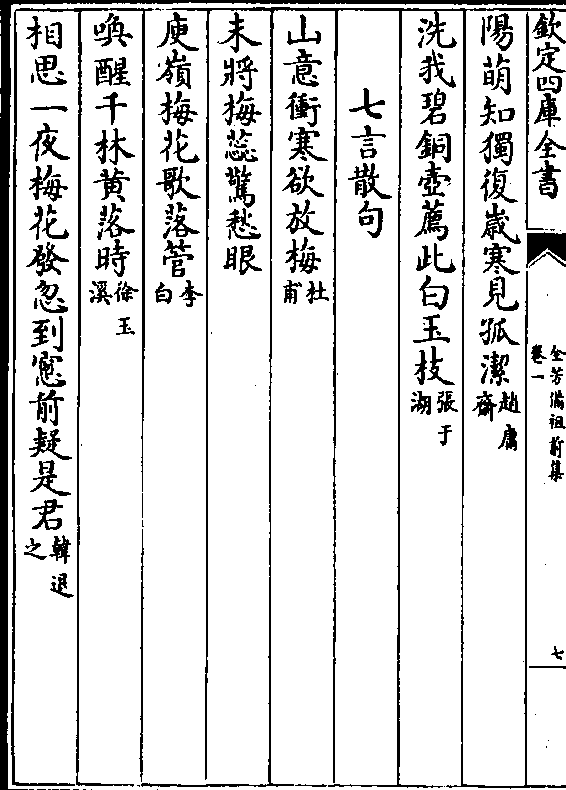 欽定四庫全書
全芳備祖前集
卷一
七
陽萌知獨復歲寒見孤潔趙庸齋
洗我碧銅壺薦此白玉枝張于湖
七言散句
山意衝寒欲放梅杜甫
未將梅蕊驚愁眼
庾嶺梅花歌落管李白
喚醒千林黄落時徐玉溪
相思一夜梅花發忽到窻前疑是君韓退之